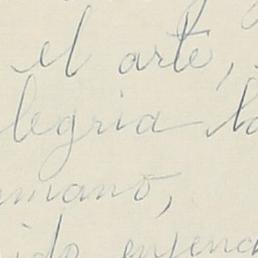 el arte,
legria la
umano,
ido enseña